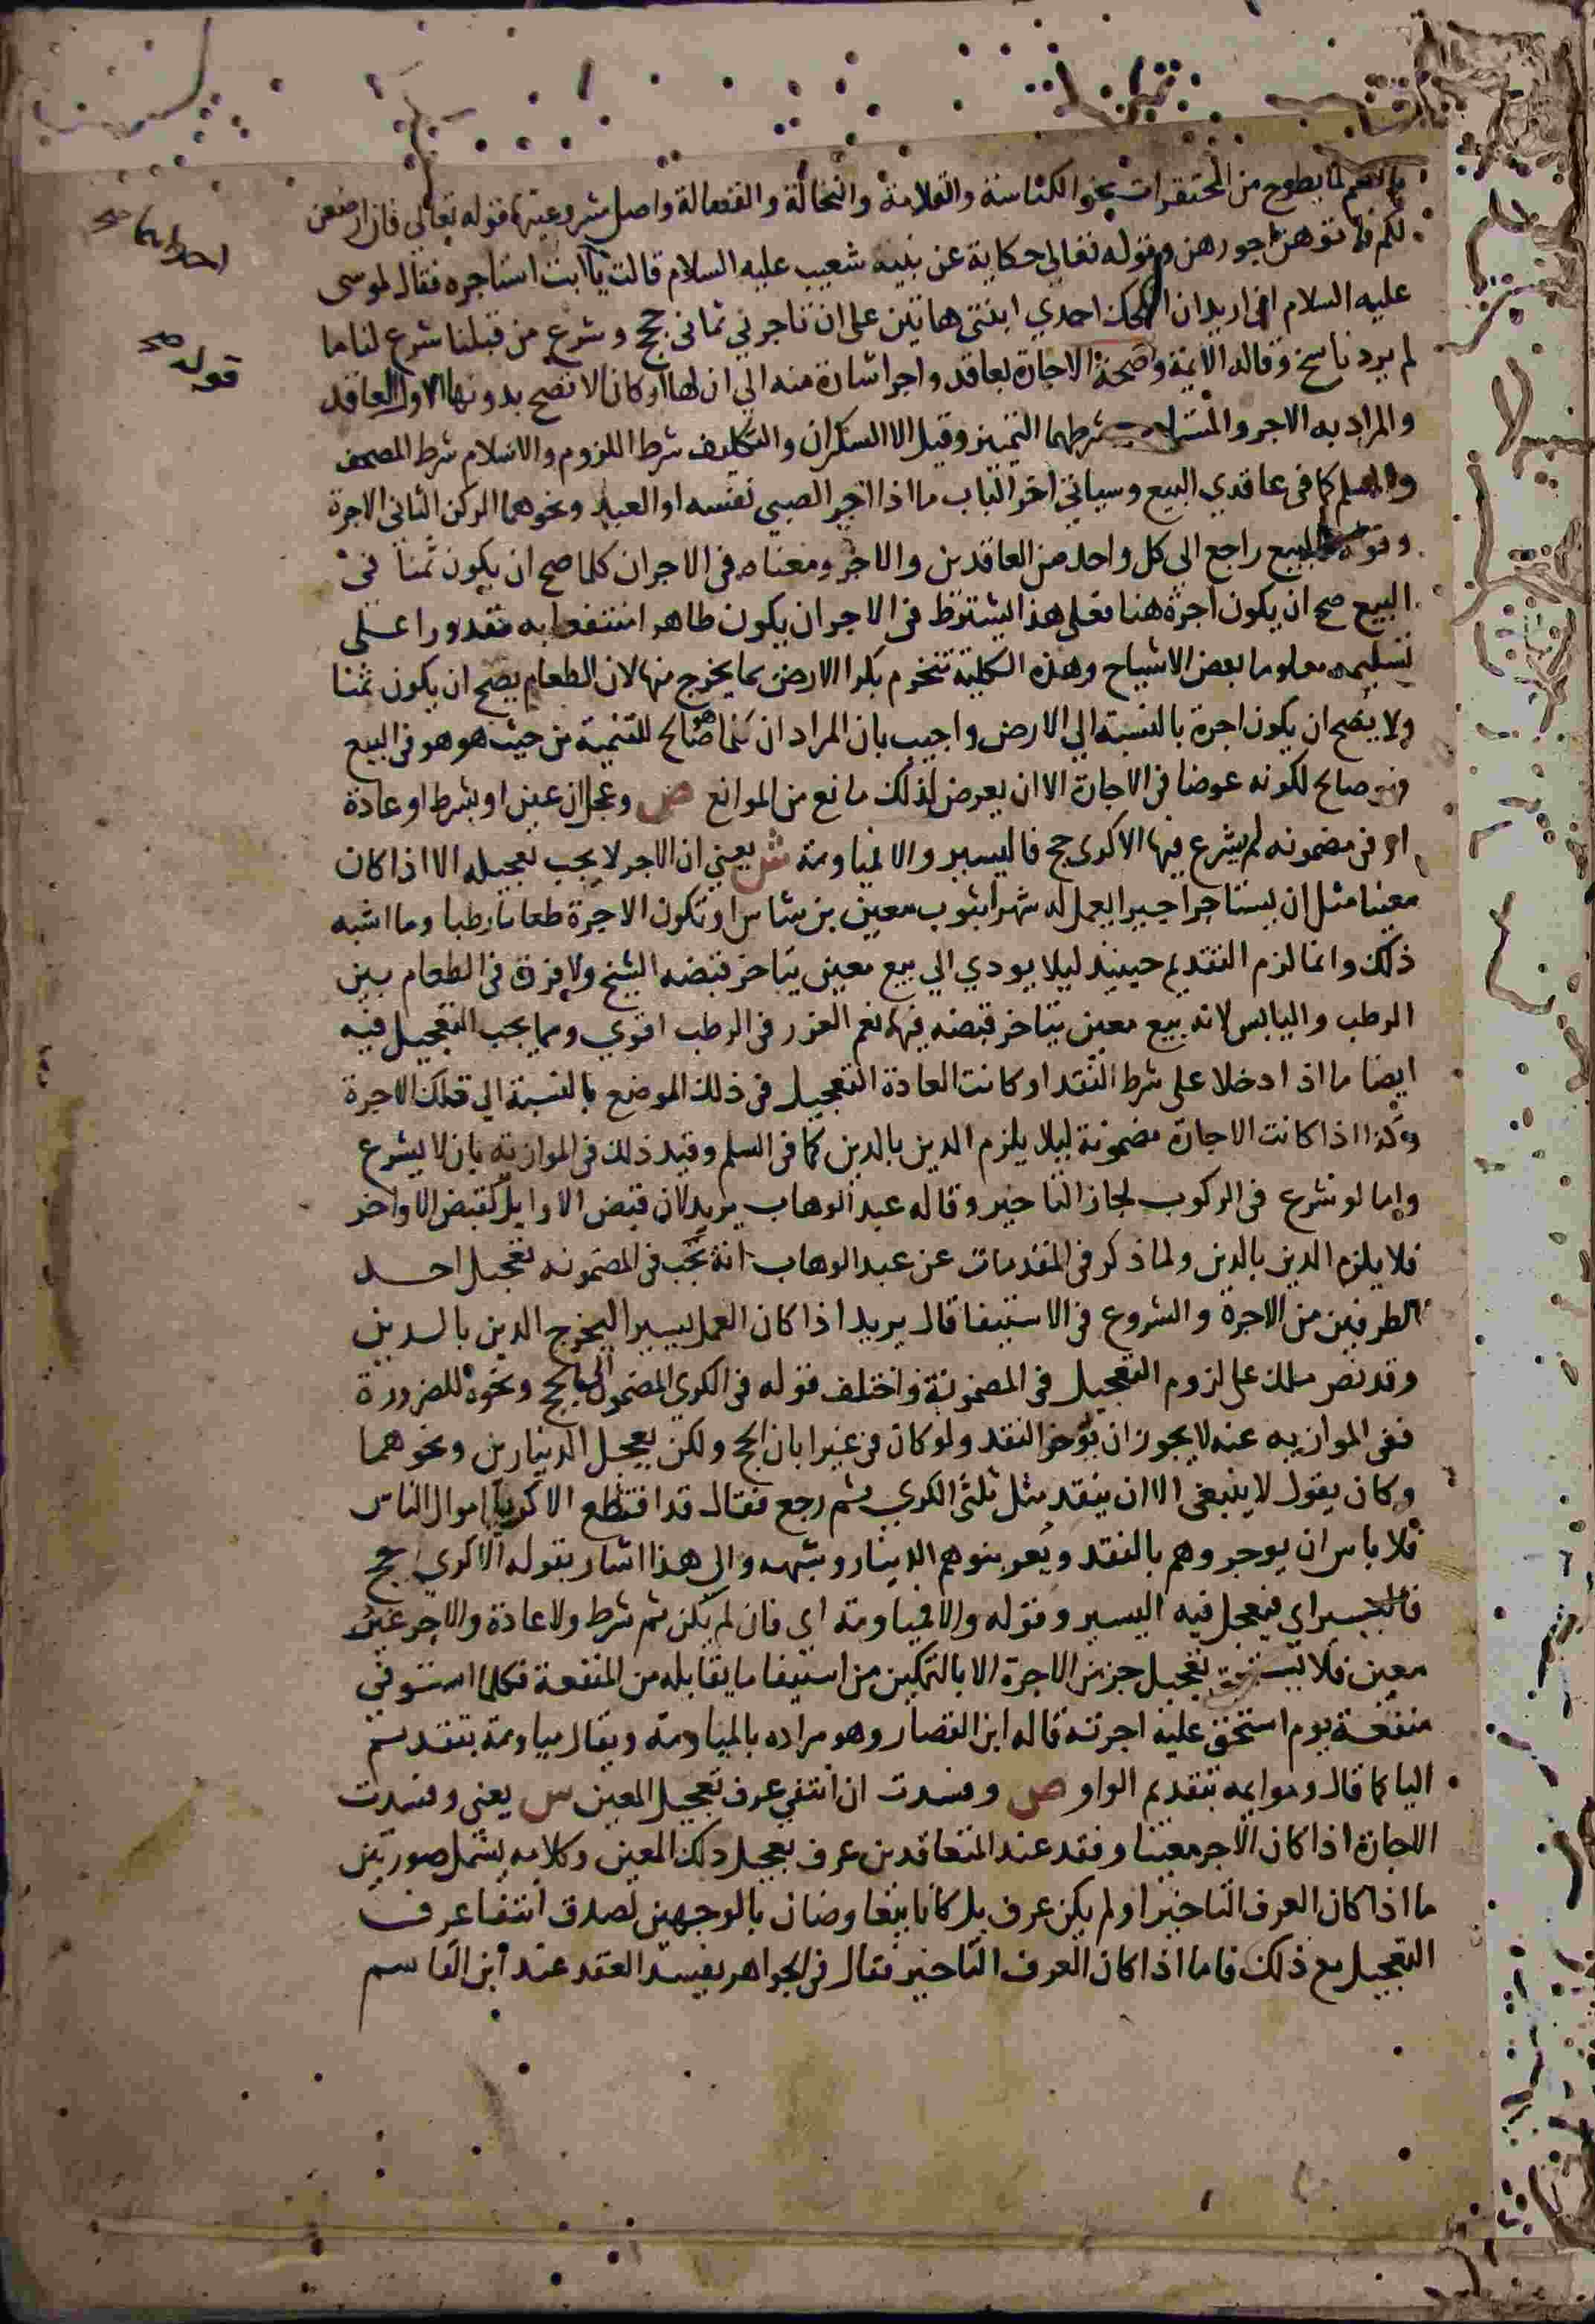 بالضم لما يطرح من المحتقرات نحو الكناسة والقلامة والنخالة والفضالة واصل مشروعيتها قوله تعالي فان ارضعن
لكم فاتوهن اجورهن وقوله تعالي حكاية عن بنيه شعيب عليه السلام قالت يا ابت استاجره فقال لموسى
عليه السلام اني اريد ان انكحك احدي ابنتي هاتين على ان تاجرني ثماني حجج وشرع من قبلنا شرع لنا ما
لم يرد ناسخ وقاله الايمة وصحة الاجارة بعاقد واجر اشارة منه الي ان لها اركان لا تصح بدونها الاول العاقد
والمراد به الاجر والمستاجر شرطهما التمييز وقيل الا السكران والتكليف شرط اللزوم والاسلام شرط المصحف
والمسلم كما في عاقدي البيع وسياتي اخر الباب ما اذا اجر الصبي نفسه او العبد ونحوهما الركن الثاني الاجرة
وقوله كالبيع راجع الى كل واحد من العاقدين والاجر ومعناه في الاجر ان كلما صح ان يكون ثمنا في
البيع صح ان يكون اجرة هنا فعلى هذا يشترط في الاجر ان يكون طاهرا منتفعا به مقدورا على
تسليمه معلوما بعض الاشياخ وهذه الكلية تنخرم بكرا الارض بما يخرج منها لان الطعام يصح ان يكون ثمنا
ولا يصح ان يكون اجرة بالنسبة الي الارض واجيب بان المراد ان كلما هو صالح للثمنية من حيث هو هو في البيع
فهو صالح لكونه عوضا في الاجارة الا ان يعرض لذلك مانع من الموانع ص وعجل ان عين او بشرط او عادة
او في مضمونه لم يشرع فيها الا كرى حج فاليسير والا فمياومة ش يعني ان الاجر لا يجب تعجيله الا اذا كان
معينا مثل ان يستاجر اجيرا يعمل له شهرا بثوب معين بن شاس او تكون الاجرة طعاما رطبا وما اشبه
ذلك وانما لزم التقديم حينيذ ليلا يودي الي بيع معين يتاخر قبضه الشيخ ولا فرق في الطعام بين
الرطب واليابس لانه بيع معين يتاخر قبضه فيها نعم الغرر في الرطب اقوي ومما يجب التعجيل فيه
ايضا ما اذا دخلا على شرط النقد او كانت العادة التعجيل في ذلك الموضع بالنسبة الي تلك الاجرة
وكذا اذا كانت الاجارة مضمونة ليلا يلزم الدين بالدين كما في السلم وقيد ذلك في الموازية بان لا يشرع
واما لو شرع في الركوب لجاز التاخير وقاله عبد الوهاب يريد لان قبض الاوايل كقبض الاواخر
فلا يلزم الدين بالدين ولما ذكر في المقدمات عن عبد الوهاب انه يجب في المضمونه تعجيل احد
الطرفين من الاجرة والشروع في الاستيفا قال يريد اذا كان العمل يسيرا ليخرج الدين بالدين
وقد نص ملك على لزوم التعجيل في المضمونة واختلف قوله في الكري المضمون الي الحج ونحوه للضرورة
ففى الموازيه عنه لا يجوز ان يؤخر النقد ولو كان في غير ابان الحج ولكن يعجل الدينارين ونحوهما
وكان يقول لا ينبغي الا ان ينقد مثل ثلثي الكري ثم رجع فقال قد اقتطع الاكريا اموال الناس
فلا باس ان يوجروهم بالنقد ويعربنوهم الدينار وشبهه والى هذا اشار بقوله الا كري حج
فاليسير اي فيعجل فيه اليسير وقوله والا فمياومة اي فان لم يكن ثم شرط ولا عادة والاجر غير
معين فلا يستحق تعجيل جز من الاجرة الا بالتمكين من استيفا ما يقابله من المنفعة فكلما استوفي
منفعة يوم استحق عليه اجرته قاله ابن القصار وهو مراده بالمياومه ويقال مياومة بتقديم
اليا كما قال وموايمه بتقديم الواو ص وفسدت ان انتفي عرف تعجيل المعين س يعني وفسدت
الاجارة اذا كان الاجر معينا وفقد عند المتعاقدين عرف بعجيل ذلك المعين وكلامه يشمل صورتين
ما اذا كان العرف التاخير او لم يكن عرف بل كانا يتعاوضان بالوجهين لصدق انتفا عرف
التعجيل مع ذلك فاما اذا كان العرف التاخير فقال في الجواهر يفسد العقد عند ابن القاسم
احداهما صح
قوله صح